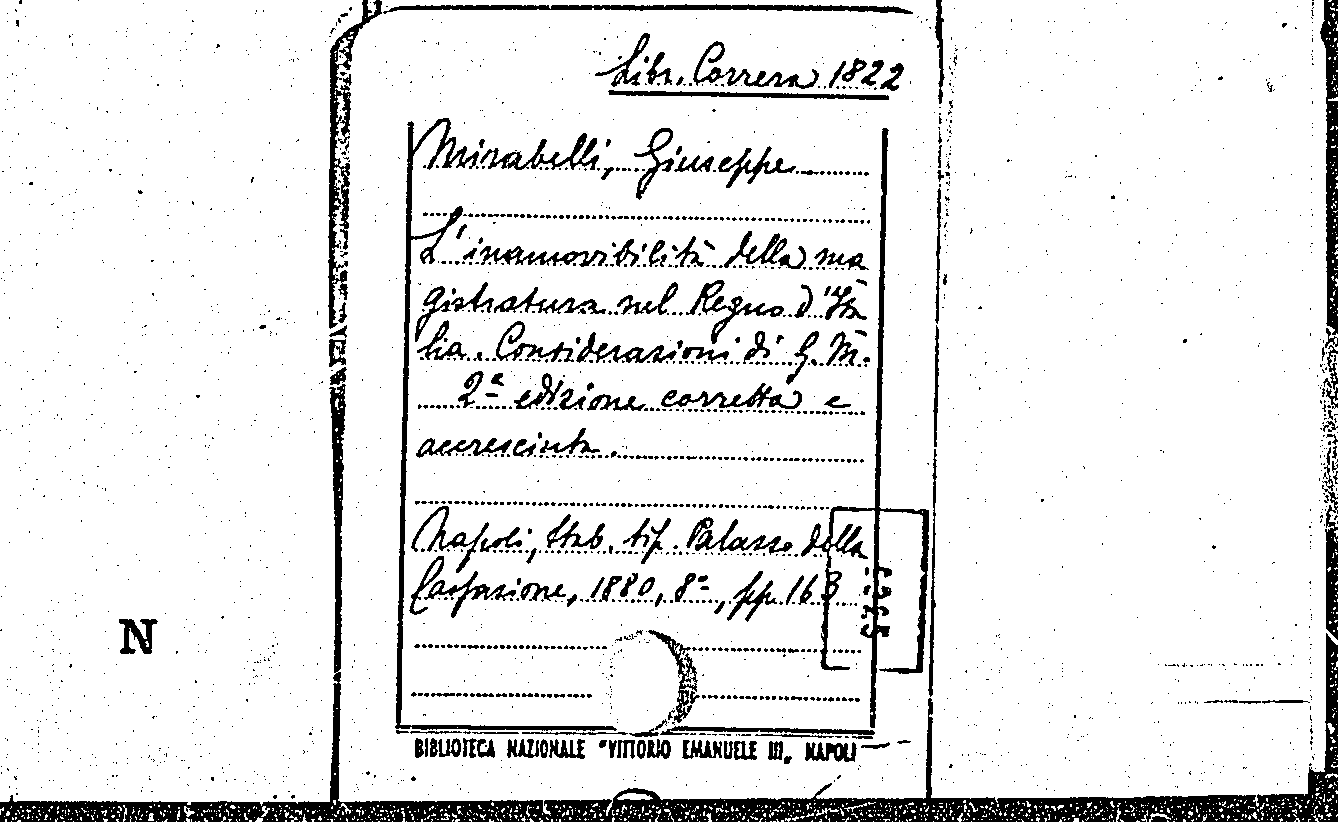 Libr. Correra 1822
Mirabelli, Giuseppe
L'inamovibilità della ma
gistratura nel Regno d'Ita
lia. Considerazioni di G. M.
2ª edizione corretta e
accresciuta.
Napoli, Stab. tip. Palazzo della
Cassazione, 1880, 8°, pp. 163
N
BIBLIOTECA NAZIONALE "VITTORIO EMANUELE III„ NAPOLI